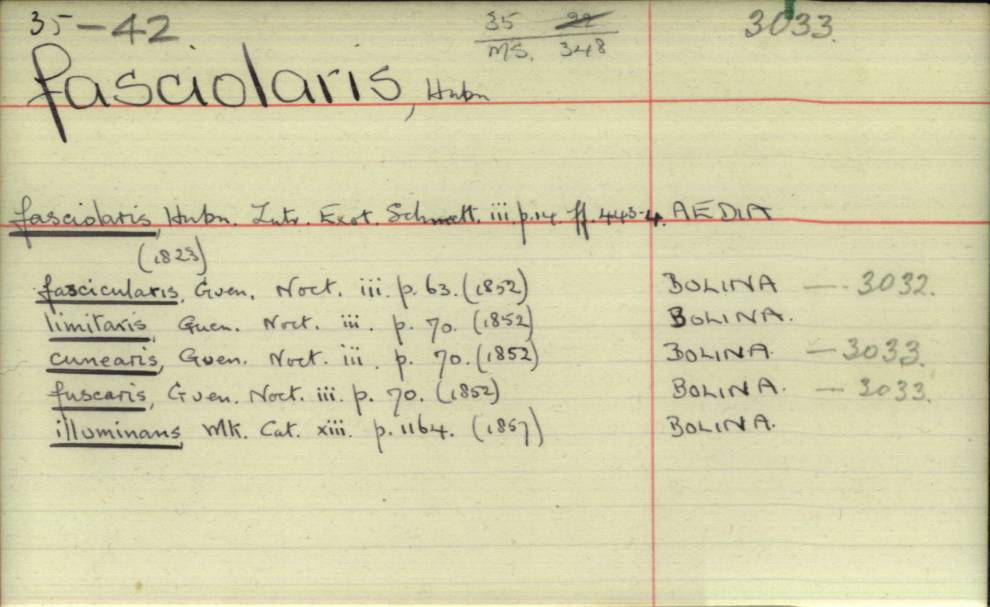 35-42 35 22 3033.
MS. 348
fasciolaris, Hubn
fasciolaris, Hubn. Zutr. Exot. Schmett. iii. p. 14. ff. 443-4. AEDIA
(1823)
fascicularis, Guen. Noct. iii. p. 63. (1852) BOLINA — 3032.
limitaris, Guen. Noct. iii. p. 70. (1852) BOLINA.
cunearis, Guen. Noct. iii. p. 70. (1852) BOLINA. — 3033.
fuscaris, Guen. Noct. iii. p. 70. (1852) BOLINA. — 3033.
illuminans, Wlk. Cat. xiii. p. 1164. (1857) BOLINA.